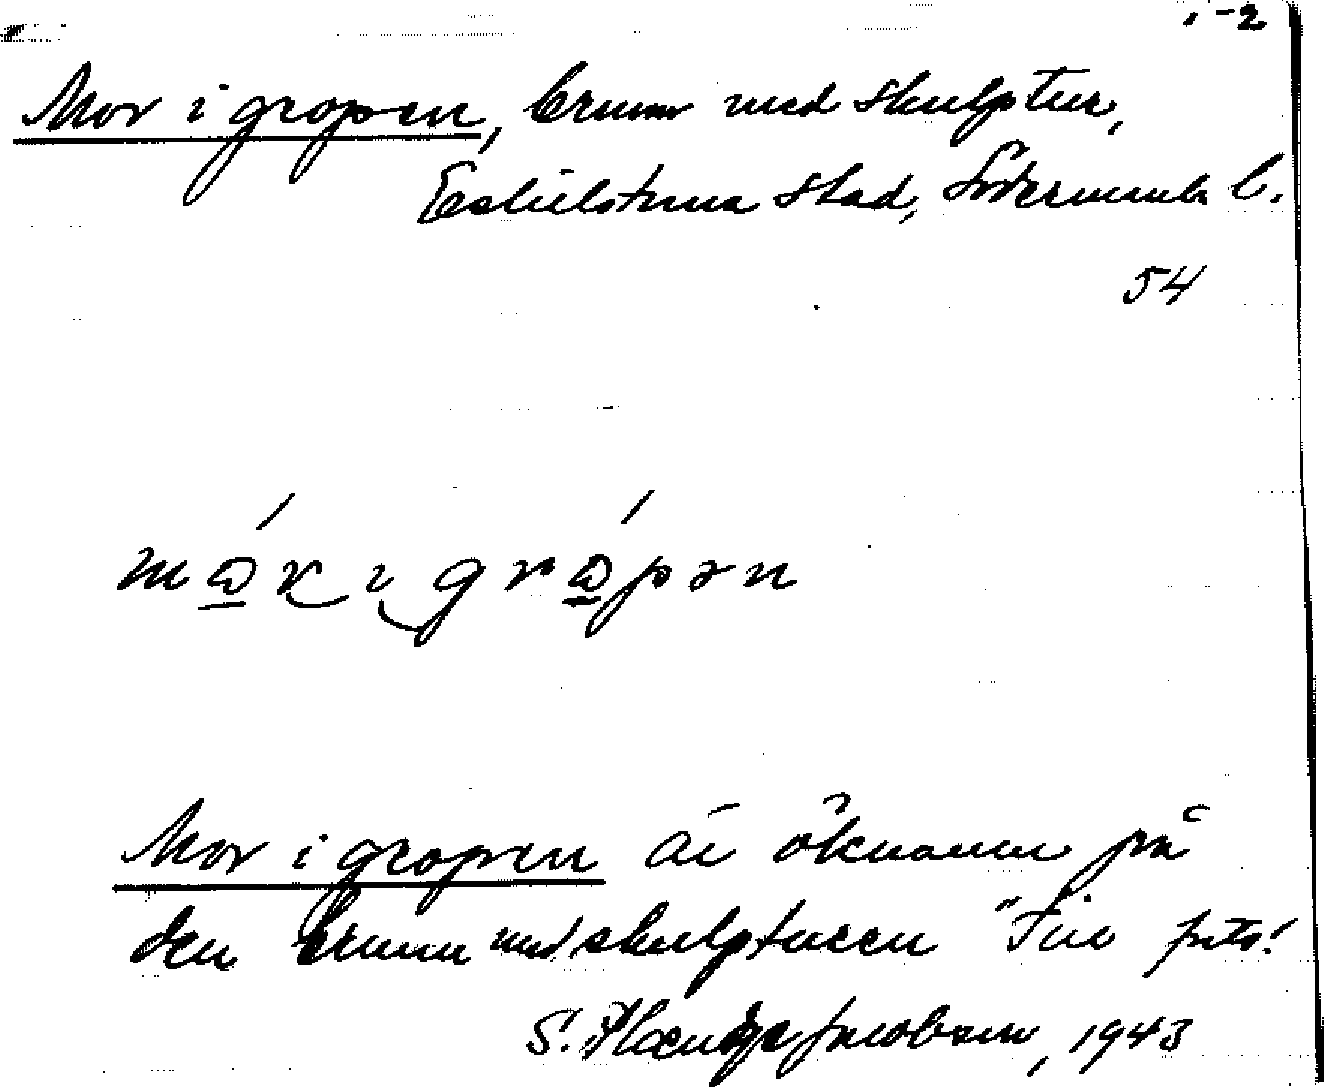 1-2
Mor i gropen, brunn med skulptur,
Eskilstuna stad, Södermanls l.
54
Mor i gropen är öknamn på
den brunn med skulpturen "Tur
S. Jacobson, 1943